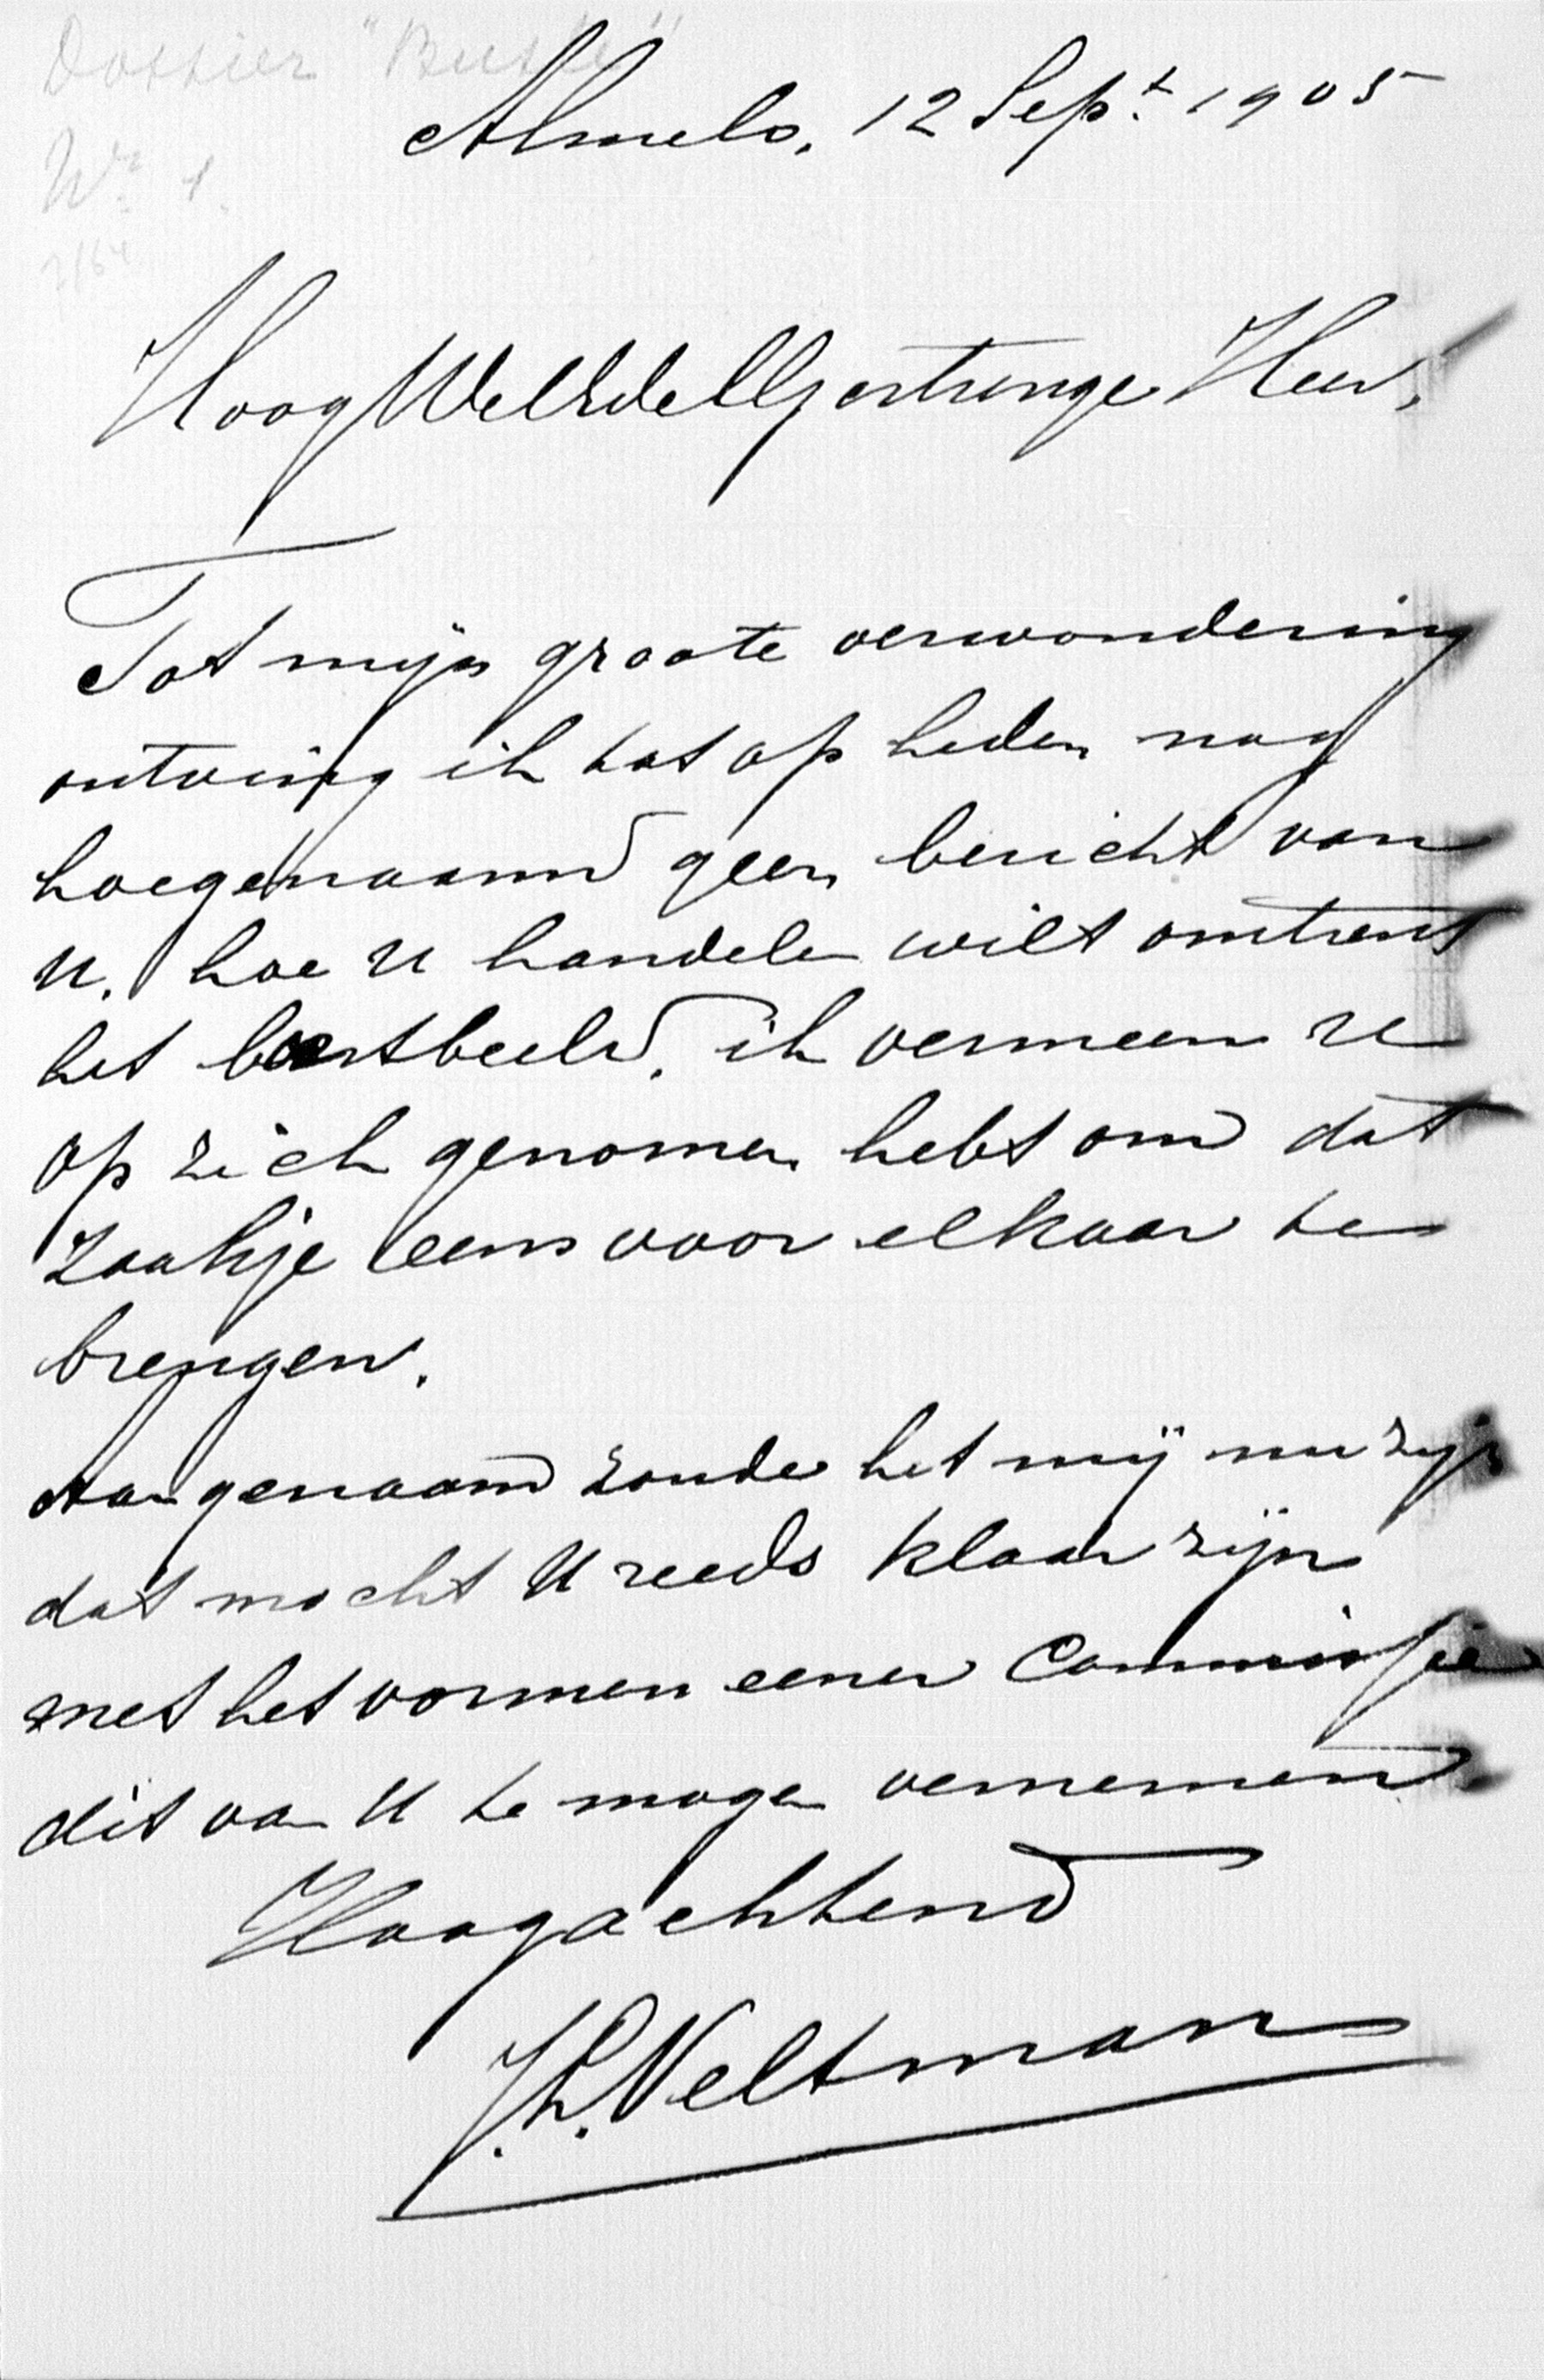 Dossier "Buste"
No. 1.
Almelo, 12 Sept. 1905
HoogWelEdelGestrenge Heer,
Tot mijn groote verwondering
ontving ik tot op heden nog
hoegenaamd geen bericht van
U. hoe U handelen wilt omtrent
het borstbeeld. ik vermeen U
op zich genomen hebt om dat
zaakje eens voor elkaar te
brengen.
Aangenaam zoude het mij nu zijn
dat mocht U reeds klaar zijn
met het vormen eener Commissie
dit van U te mogen vernemen
Hoogachtend
Veltman